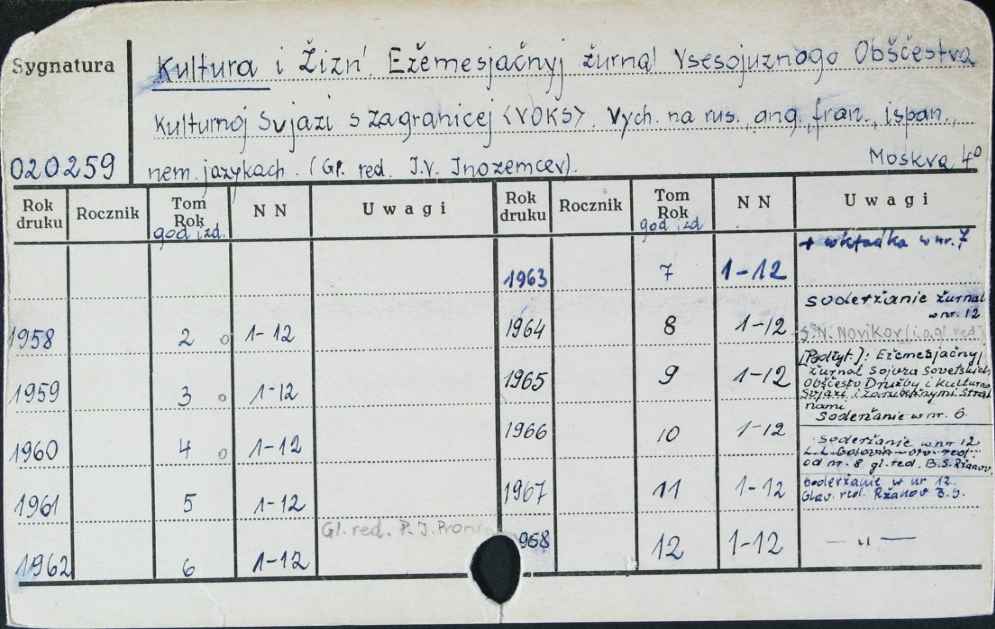 Sygnatura
Kultura i Žizń. Ežemesjačnyj žurnal Vsesojuznogo Obščestva
Kulturnoj Svjazi s zagranicej <VOKS>. Vych. na rus., ang., fran., ispan.,
020259
nem. jazykach. (Gl. red. I.V. Inozemcev).
Moskva 4°
Rok druku Rocznik Tom Rok god izd. NN Uwagi Rok druku Rocznik Tom Rok god izd NN Uwagi
1963 7 1-12 + wkładka w nr. 7
1958 2 1-12
1964 8 1-12 soderžanie žurnal w nr. 12
S.N. Novikov (i.o. gl. red)
1959 3 1-12
1965 9 1-12 [Podtyt]: Ežemesjačnyj
žurnal Sojuza Sovetskich
Obščestv Družby i Kulturno
Svjazi i zarubežnymi Stra-
nami
Soderžanie w nr. 6
1960 4 1-12
1966 10 1-12 soderžanie w nr 12
od nr. 8 gl. red. B.S. Ržanov.
1961 5 1-12
1967 11 1-12 soderžanie w nr 12.
Glav. red. Ržanov B.S.
Gl. red. P. I.
1962 6 1-12
968 12 1-12 — " —